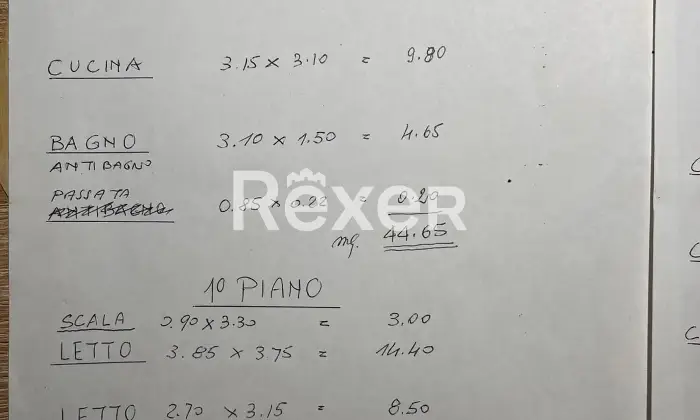 CUCINA 3.15 x 3.10 = 9.80
BAGNO 3.10 x 1.50 = 4.65
ANTIBAGNO
PASSATA
ANTIBAGNO 0.85 x 0.22 = 0.20
RexeR
mq. 44.65
1º PIANO
SCALA 0.90 x 3.30 = 3.00
LETTO 3.85 x 3.75 = 14.40
LETTO 2.70 x 3.15 = 8.50